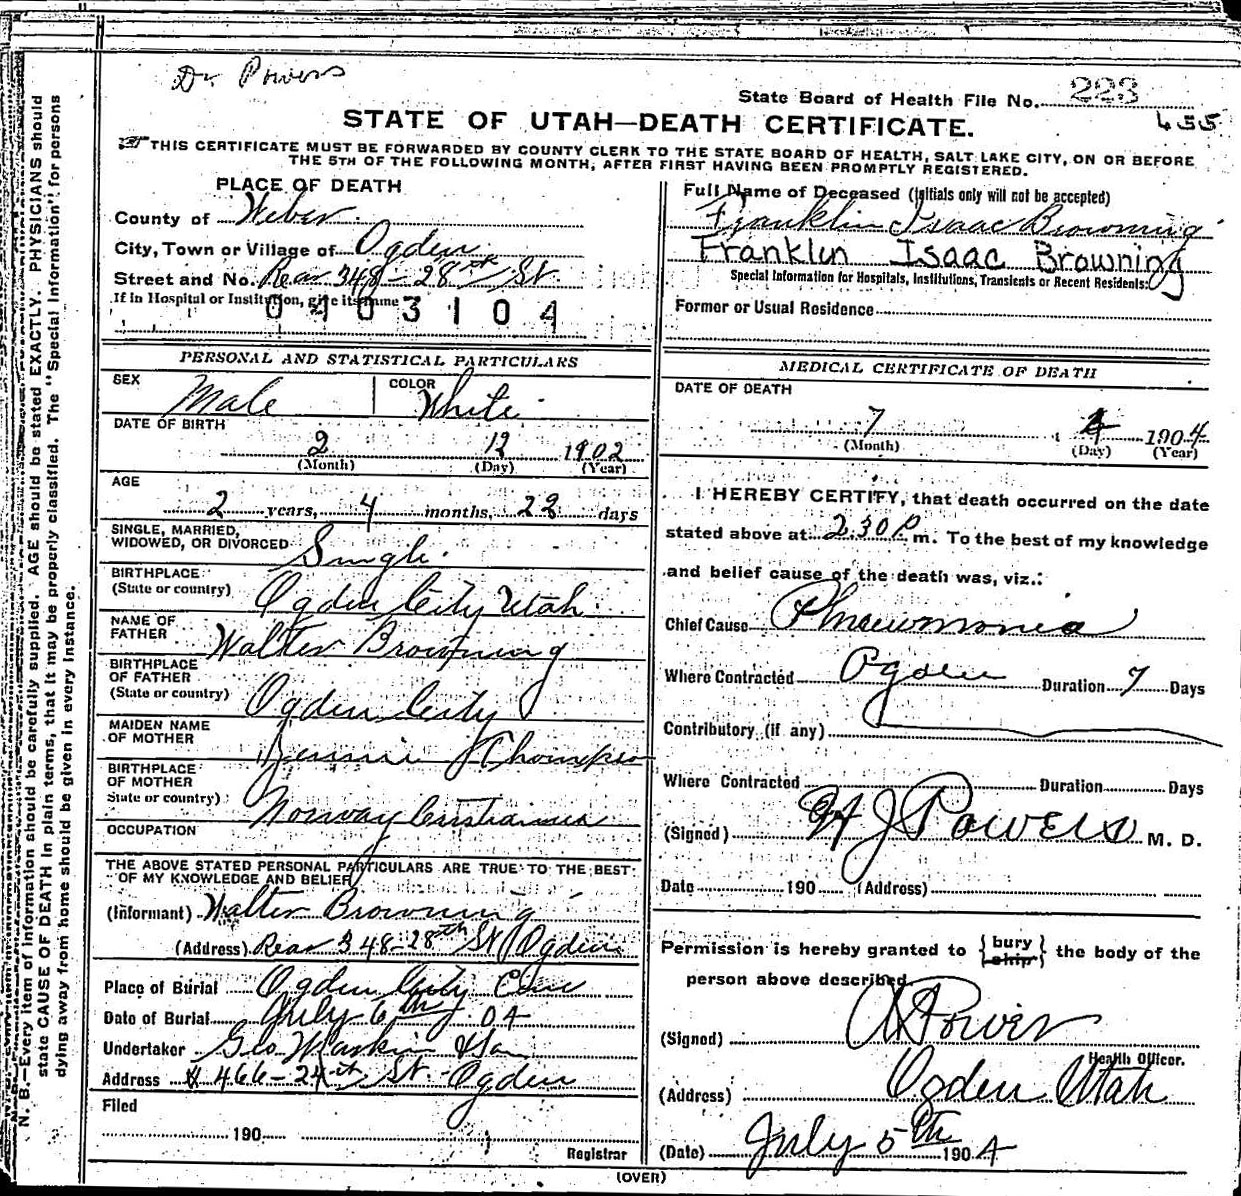 Dr. Powers
State Board of Health File No. 223
455
STATE OF UTAH—DEATH CERTIFICATE.
THIS CERTIFICATE MUST BE FORWARDED BY COUNTY CLERK TO THE STATE BOARD OF HEALTH, SALT LAKE CITY, ON OR BEFORE
THE 5TH OF THE FOLLOWING MONTH, AFTER FIRST HAVING BEEN PROMPTLY REGISTERED.
PLACE OF DEATH
County of Weber
City, Town or Village of Ogden
Street and No. Rear 348-28th St.
If in Hospital or Institution, give its name
0403104
PERSONAL AND STATISTICAL PARTICULARS
SEX Male COLOR White
DATE OF BIRTH
2 12 1902
(Month) (Day) (Year)
AGE
2 years, 4 months, 22 days
SINGLE, MARRIED,
WIDOWED, OR DIVORCED Single
BIRTHPLACE
(State or country) Ogden City Utah
NAME OF
FATHER Walter Browning
BIRTHPLACE
OF FATHER
(State or country) Ogden City
MAIDEN NAME
OF MOTHER Jennie Thompson
BIRTHPLACE
OF MOTHER
State or country) Norway Cristiania
OCCUPATION
THE ABOVE STATED PERSONAL PARTICULARS ARE TRUE TO THE BEST
OF MY KNOWLEDGE AND BELIEF
(Informant) Walter Browning
(Address) Rear 348-28th St Ogden
Place of Burial Ogden City Cem
Date of Burial July 6th 04
Undertaker Geo
Address 466-24th St. Ogden
Filed
190
Registrar
Full Name of Deceased (Initials only will not be accepted)
Franklin Isaac Browning
Franklin Isaac Browning
Special Information for Hospitals, Institutions, Transients or Recent Residents:
Former or Usual Residence
MEDICAL CERTIFICATE OF DEATH
DATE OF DEATH
7 4 1904
(Month) (Day) (Year)
I HEREBY CERTIFY, that death occurred on the date
stated above at 2.30 P. m. To the best of my knowledge
and belief cause of the death was, viz.:
Chief Cause Phneumonia
Where Contracted Ogden Duration 7 Days
Contributory (if any)
Where Contracted Duration Days
(Signed) H J Powers M. D.
Date 190 (Address)
Permission is hereby granted to {bury ship} the body of the
person above described
(Signed) Power
Health Officer.
(Address) Ogden Utah
(Date) July 5th 1904
(OVER)
N. B.—Every item of information should be carefully supplied. AGE should be stated EXACTLY. PHYSICIANS should
state CAUSE OF DEATH in plain terms, that it may be properly classified. The "Special Information" for persons
dying away from home should be given in every instance.